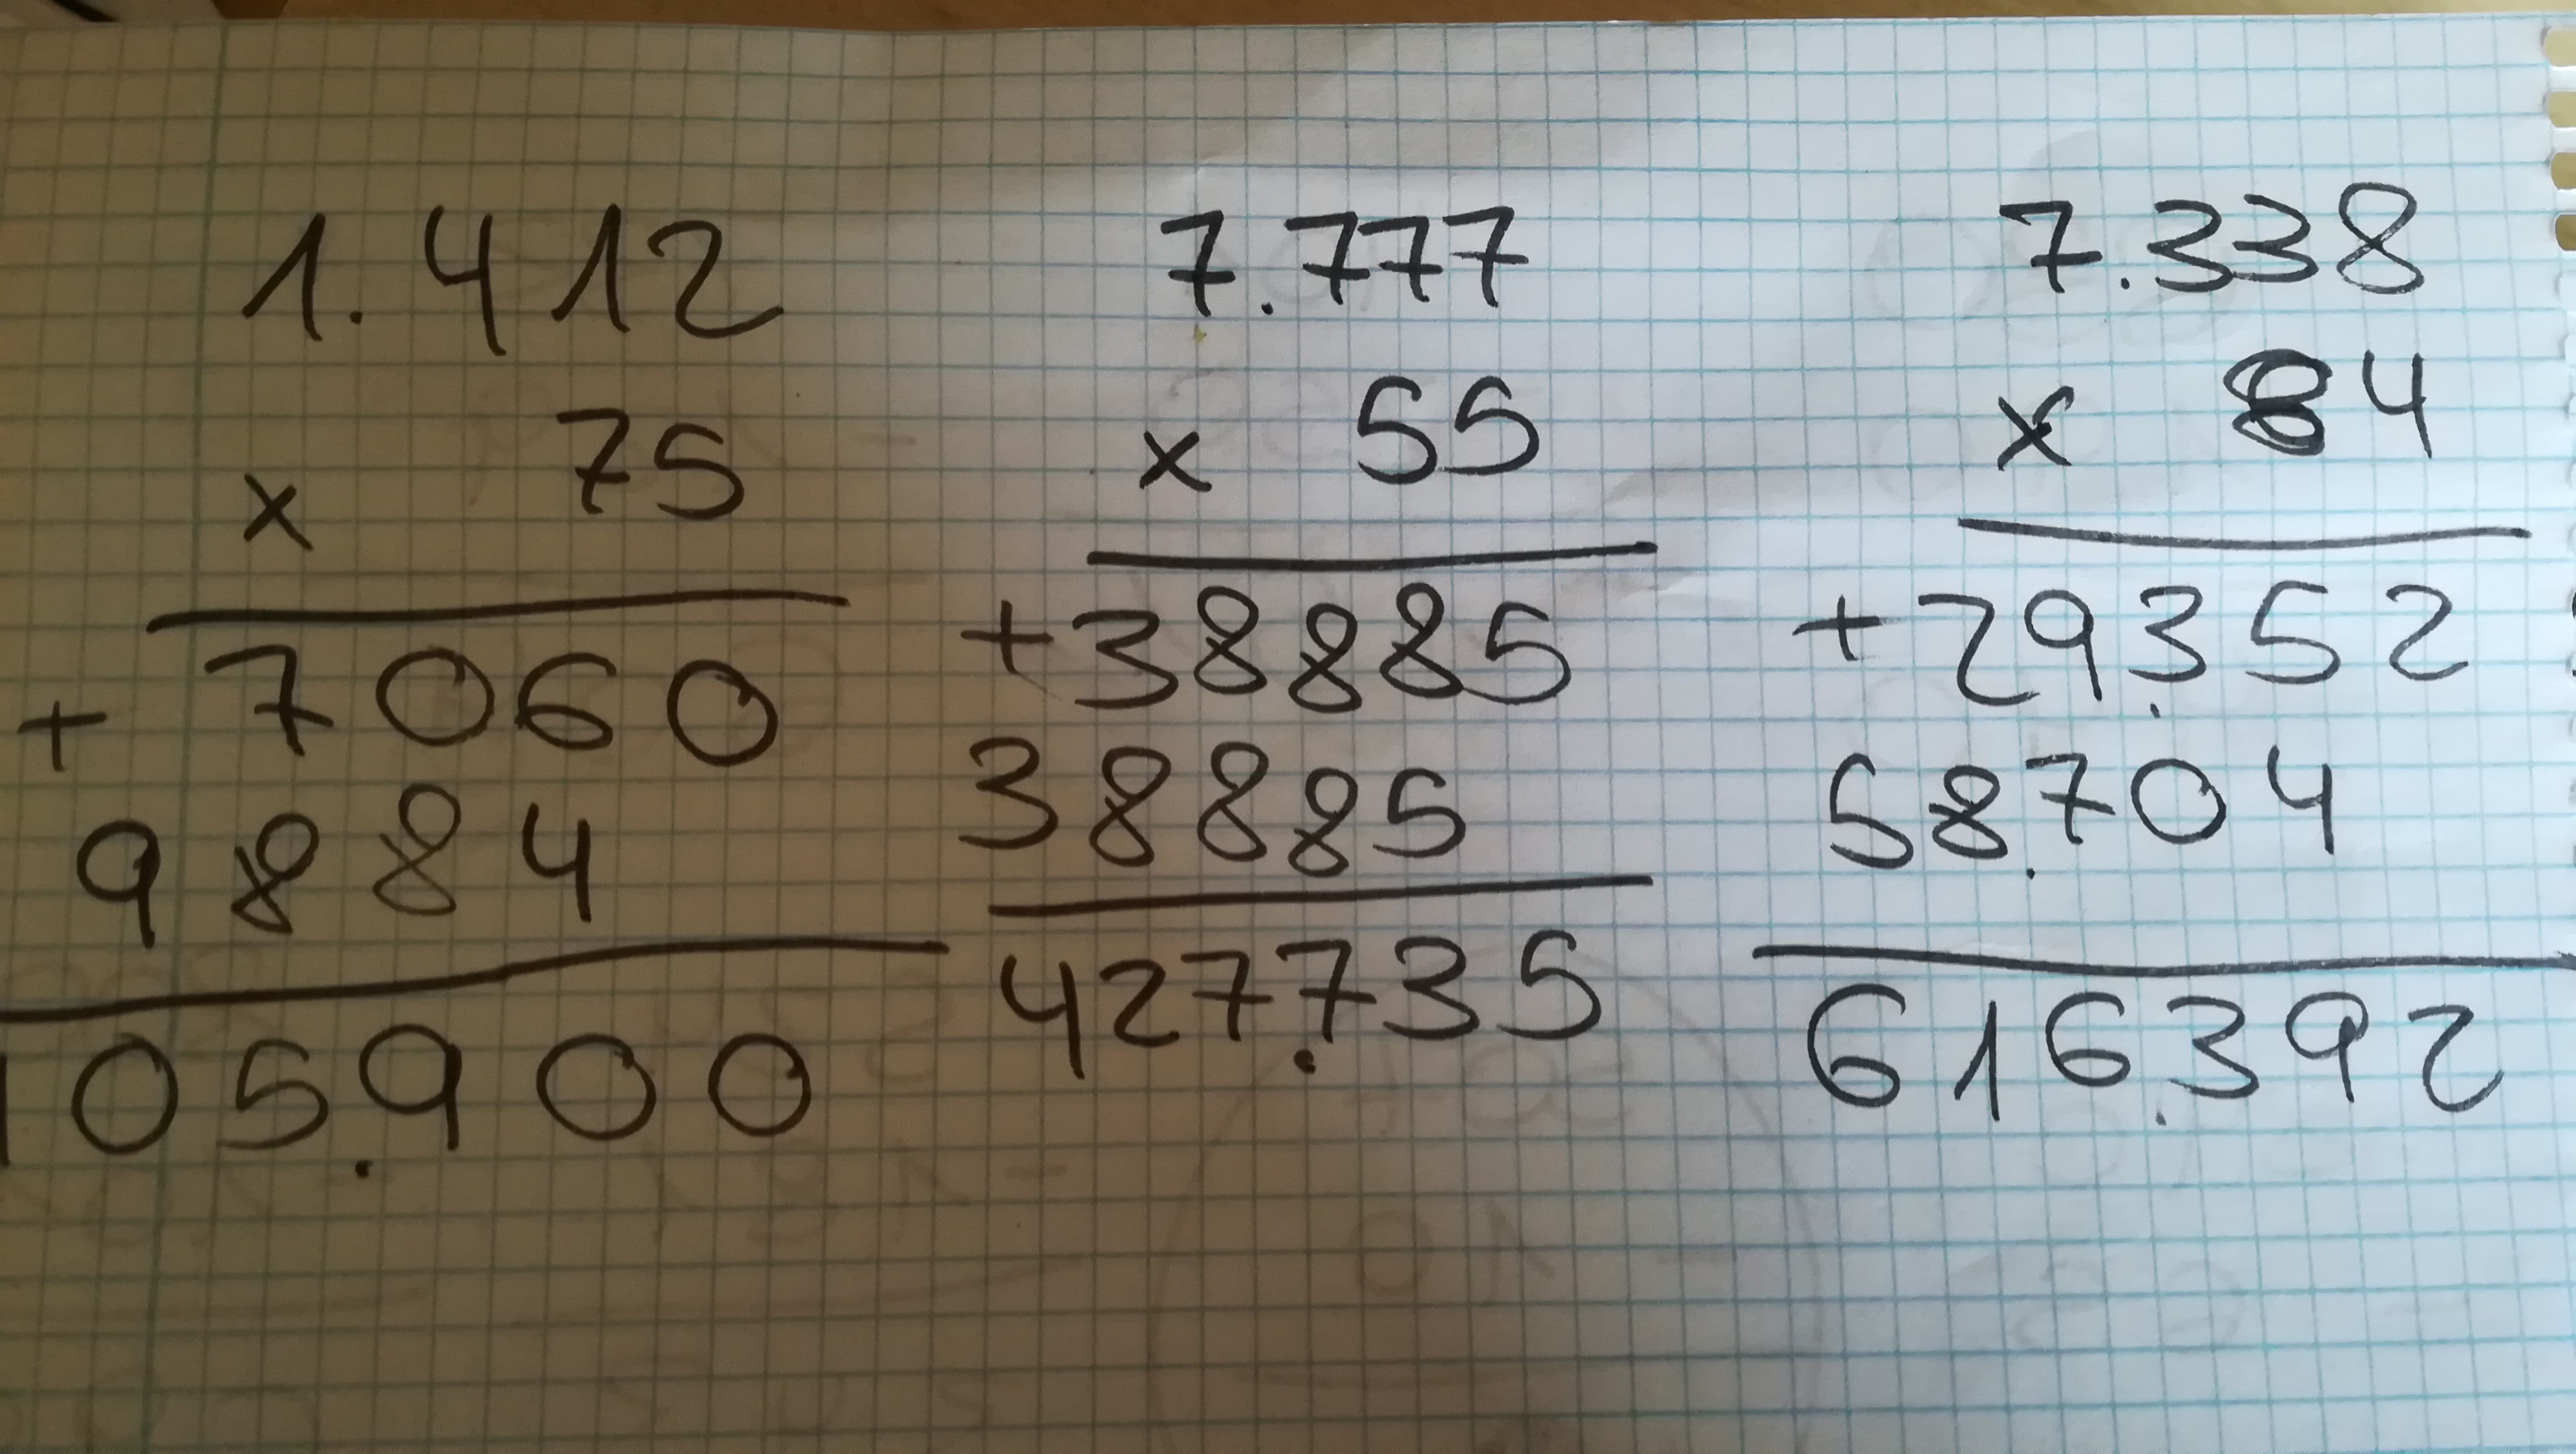 1.412
x 75
+ 7060
9884
105.900
7.777
x 55
+38885
38885
427.735
7.338
x 84
+29.352
58.704
616.392